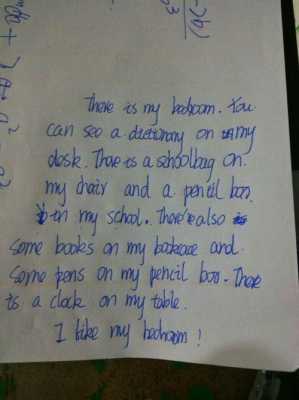 There is my bedroom. You
can see a dictionary on my
desk. There is a schoolbag on
my chair and a pencil box
in my school. There're also
some books on my bookcase and
some pens on my pencil box. There
is a clock on my table.
I like my bedroom!